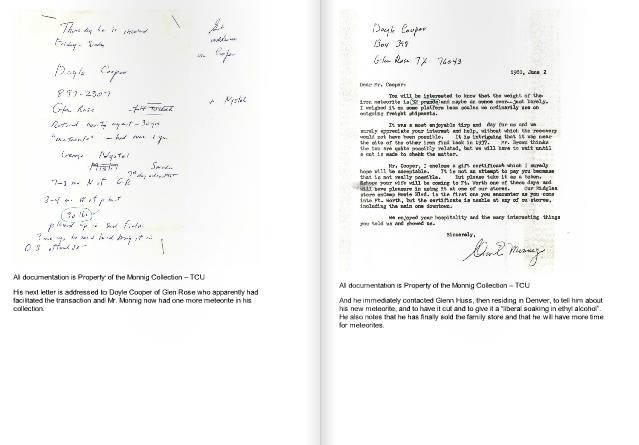 Thursday he is
Friday -
Get
address
Cooper
Doyle Cooper
897-2307
Glen Rose
+ Nystol
Retired county agent - 30 yrs
"meteorite" - had one 1 yr
George Nystol
7-8 mi N of G R
3-4 mi W of plant
30 lbs
plowed up in Sand Field
Doyle Cooper
Box 398
Glen Rose TX 76043
1981, June 2
Dear Mr. Cooper:
You will be interested to know that the weight of the
iron meteorite is 32 pounds and maybe an ounce over--just barely.
I weighed it on some platform beam scales we ordinarily use on
outgoing freight shipments.
It was a most enjoyable trip and day for us and we
surely appreciate your interest and help, without which the recovery
would not have been possible. It is intriguing that it was near
the site of the other iron find back in 1937. Mr. Brown thinks
the two are quite possibly related, but we will have to wait until
a cut is made to check the matter.
Mr. Cooper, I enclose a gift certificate which I surely
hope will be acceptable. It is not an attempt to pay you because
that is not really possible. But please take it as a token.
your wife will be coming to Ft. Worth one of these days and
will have pleasure in using it at one of our stores. Our Ridglea
store on Camp Bowie Blvd. is the first one you encounter as you come
into Ft. Worth, but the certificate is usable at any of our stores,
including the main one downtown.
We enjoyed your hospitality and the many interesting things
you told us and showed us.
Sincerely,
Oscar E Monnig
All documentation is Property of the Monnig Collection – TCU
His next letter is addressed to Doyle Cooper of Glen Rose who apparently had
facilitated the transaction and Mr. Monnig now had one more meteorite in his
collection.
All documentation is Property of the Monnig Collection – TCU
And he immediately contacted Glenn Huss, then residing in Denver, to tell him about
his new meteorite, and to have it cut and to give it a "liberal soaking in ethyl alcohol".
He also notes that he has finally sold the family store and that he will have more time
for meteorites.